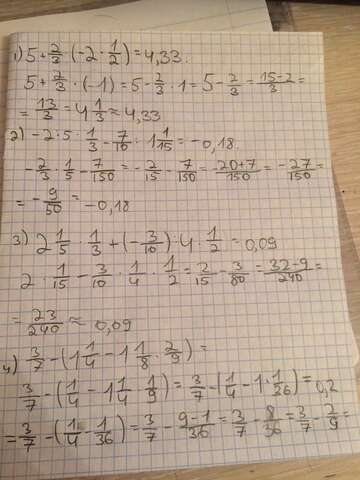 1) 5+2/3·(-2·1/2)=4,33.
5+2/3·(-1)=5-2/3·1=5-2/3=15-2/3=
=13/3=4 1/3≈4,33
2) -2:5·1/3-7/10·1 1/15=-0,18.
-2/3·1/5-7/150=-2/15-7/150=-20+7/150=-27/150=
=-9/50=-0,18
3) 2 1/5·1/3+(-3/10):4·1/2=0,09
2·1/15-3/10·1/4·1/2=2/15-3/80=32-9/240=
=23/240≈0,09
4) 3/7-(1 1/4-1 1/8·2/9)=
3/7-(1/4-1 1/4·1/9)=3/7-(1/4-1·1/36)=0,2
=3/7-(1/4-1/36)=3/7-9-1/36=3/7-8/36=3/7-2/9=